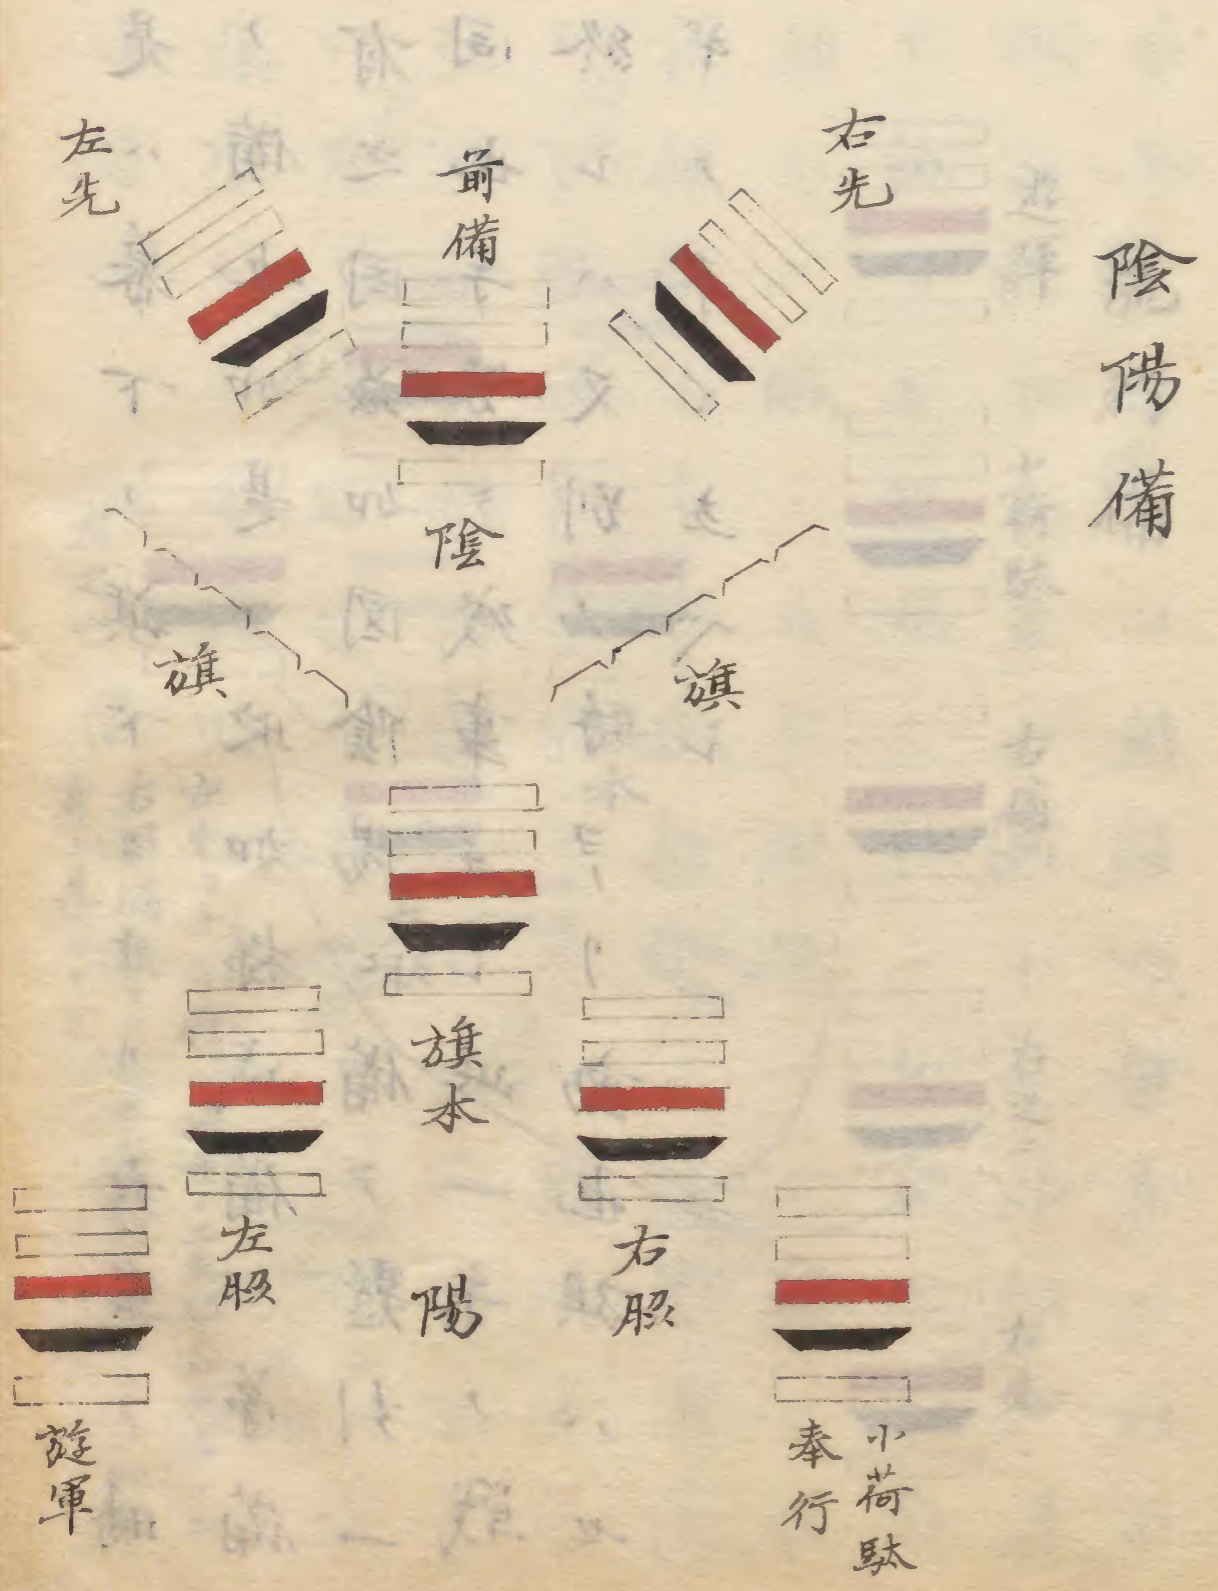 陰陽備
右先
前備
左先
陰
旗
旗
旗本
右脇
左脇
陽
小荷駄
奉行
遊軍